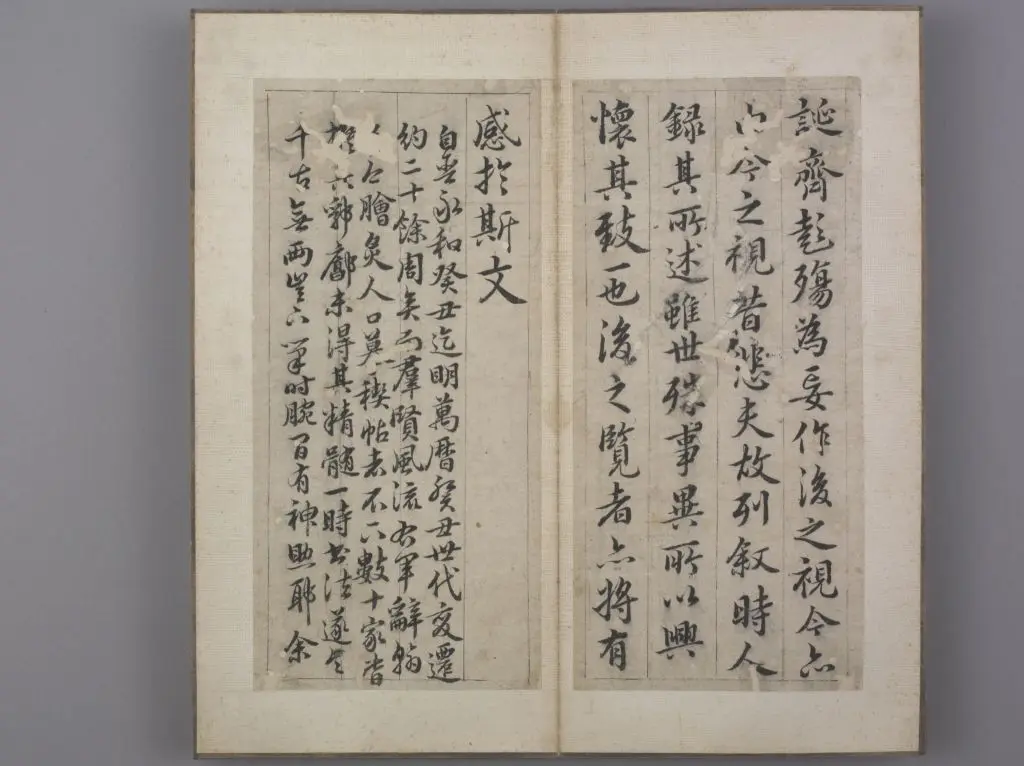 誕齊彭殤為妄作後之視今亦
由今之視昔悲夫故列叙時人
録其所述雖世殊事異所以興
懷其致一也後之覽者亦將有
感於斯文
自晉永和癸丑迄明萬曆癸丑世代變遷
約二十餘周矣而羣賢風流右軍辭翰
膾炙人口摹禊帖者不下數十家皆
郛廓未得其精髓一時書法遂令
千古無兩豈下筆时腕間有神助耶余